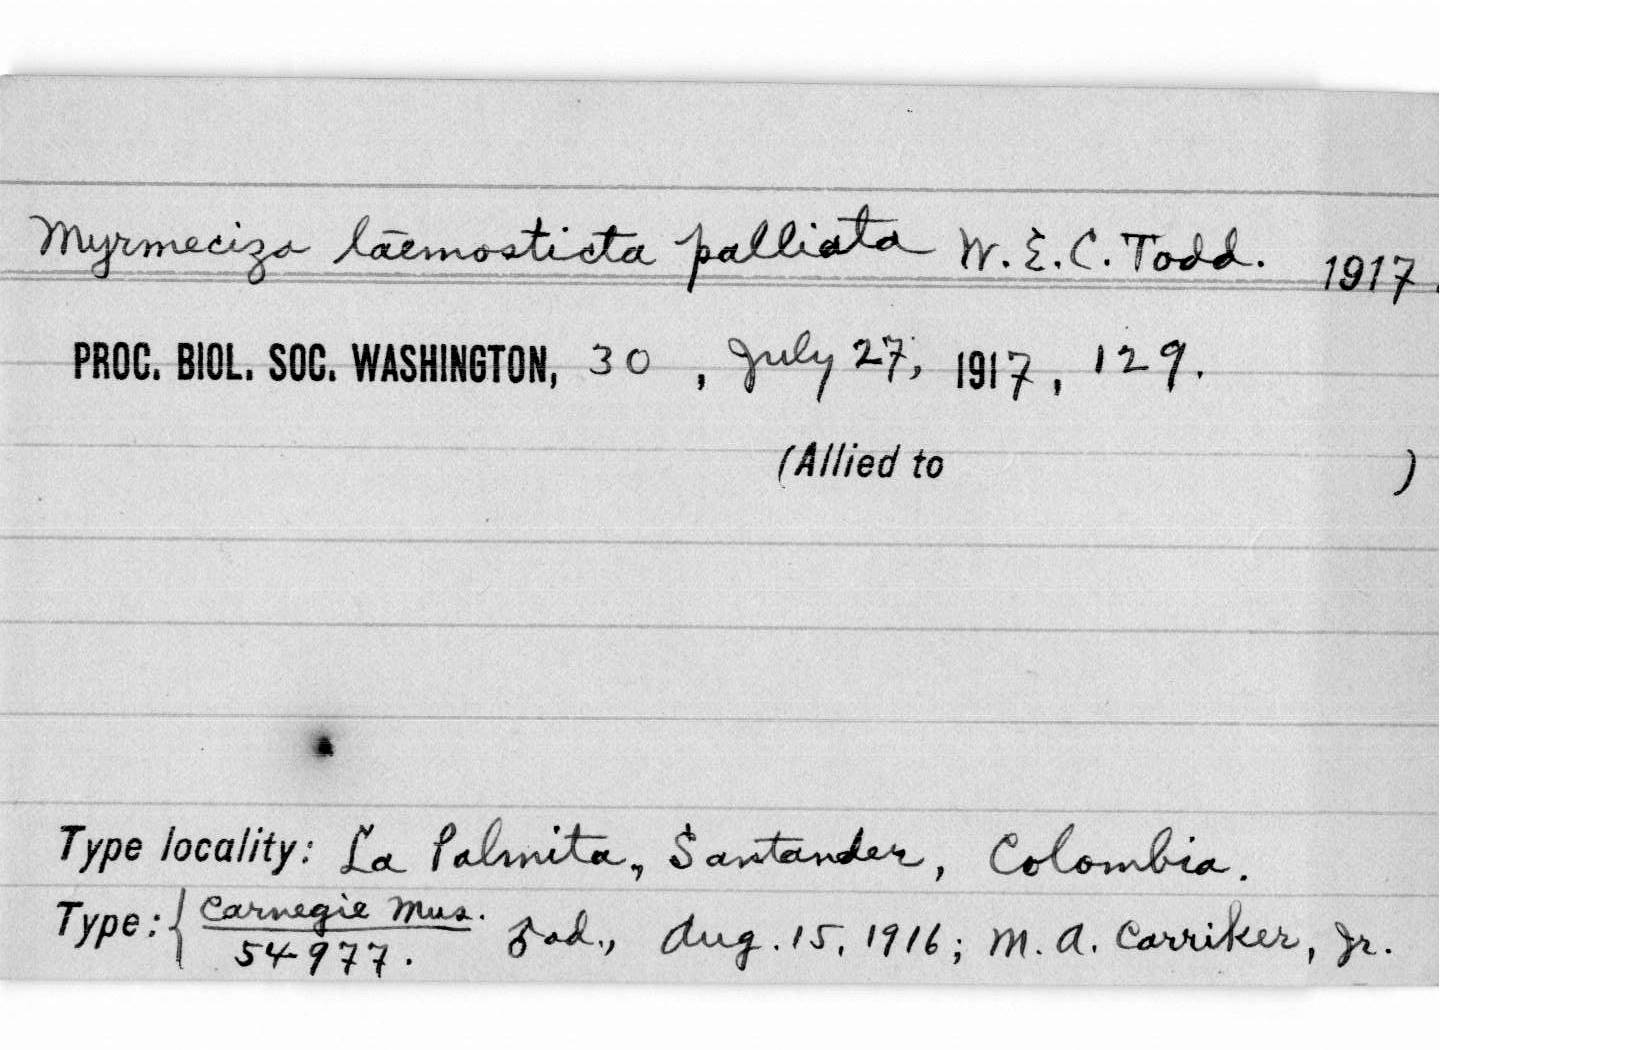 Myrmeciza laemosticta palliata W.E.C. Todd. 1917.
PROC. BIOL. SOC. WASHINGTON, 30, July 27, 1917, 129.
(Allied to )
Type locality: La Palmita, Santander, Colombia.
Type: { Carnegie Mus. ♂ ad., Aug. 15, 1916; M. A. Carriker, Jr.
54977.